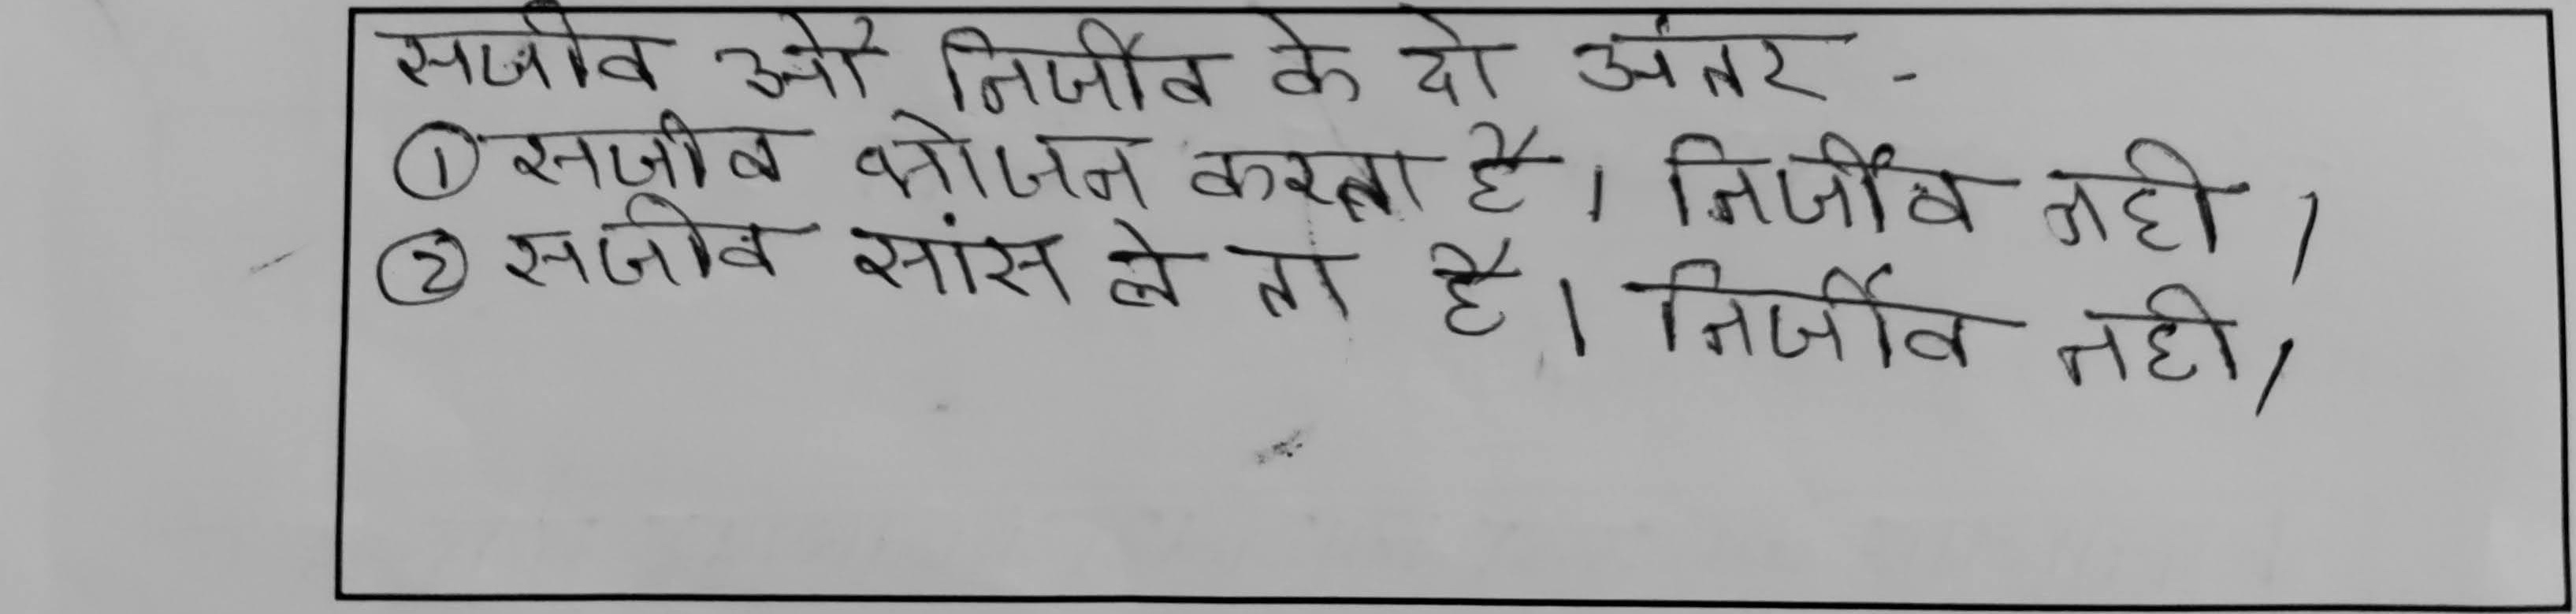 सजीव औ निर्जीव के दो अंतर -
① सजीव भोजन करता है । निर्जीव नही ।
② सजीव सांस ले ता है । निर्जीव नही ।